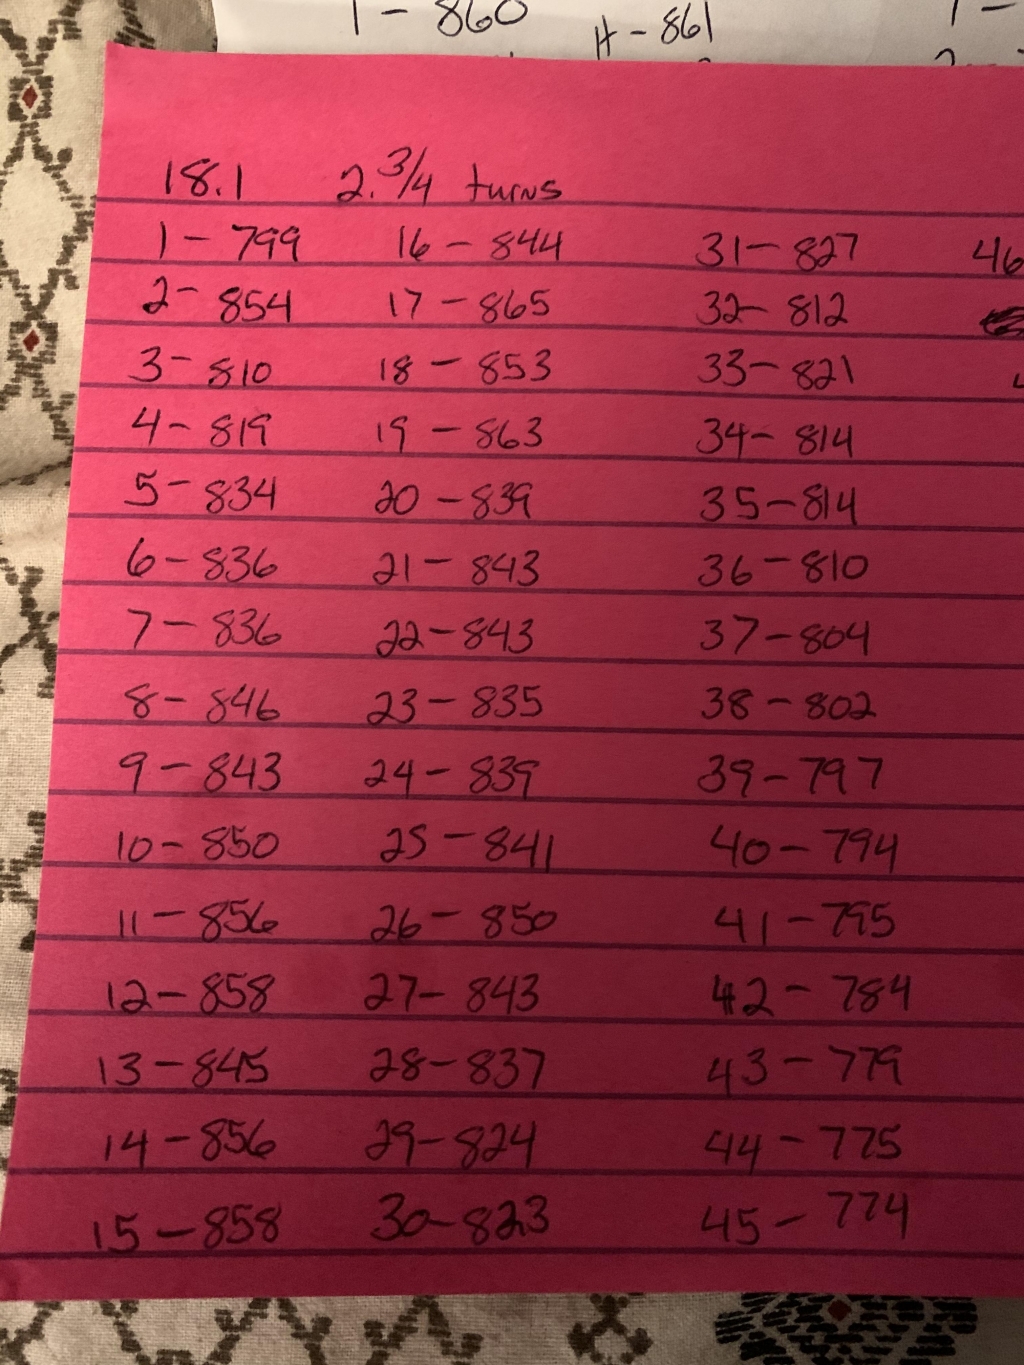 1 - 860
H - 861
18.1 2.3/4 turns
1 - 799 16 - 844 31 - 827 46
2 - 854 17 - 865 32 - 812
3 - 810 18 - 853 33 - 821
4 - 819 19 - 863 34 - 814
5 - 834 20 - 839 35 - 814
6 - 836 21 - 843 36 - 810
7 - 836 22 - 843 37 - 804
8 - 846 23 - 835 38 - 802
9 - 843 24 - 839 39 - 797
10 - 850 25 - 841 40 - 794
11 - 856 26 - 850 41 - 795
12 - 858 27 - 843 42 - 784
13 - 845 28 - 837 43 - 779
14 - 856 29 - 824 44 - 775
15 - 858 30 - 823 45 - 774